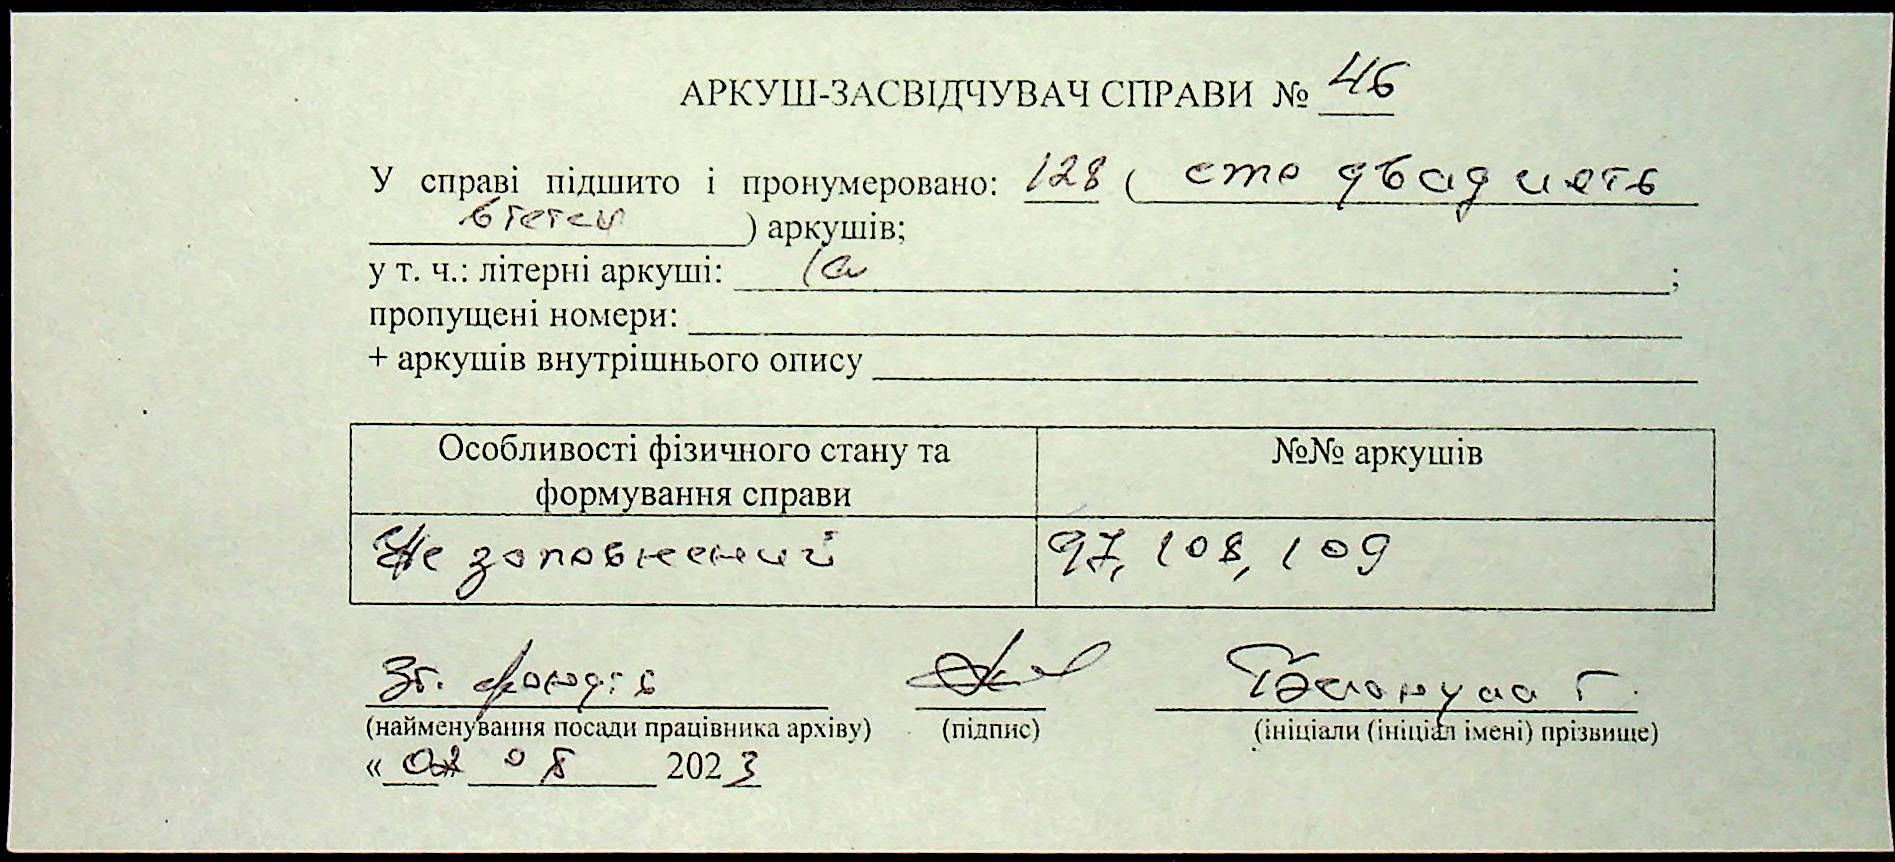 АРКУШ-ЗАСВІДЧУВАЧ СПРАВИ № 46
У справі підшито і пронумеровано: 128 ( сто двадцять
вісім ) аркушів;
у т. ч.: літерні аркуші: 1а ;
пропущені номери:
+ аркушів внутрішнього опису
Особливості фізичного стану та формування справи
№№ аркушів
Не заповнений
97, 108, 109
Зб. фондів
(найменування посади працівника архіву) (підпис) (ініціали (ініціал імені) прізвище)
« 02 08 2023